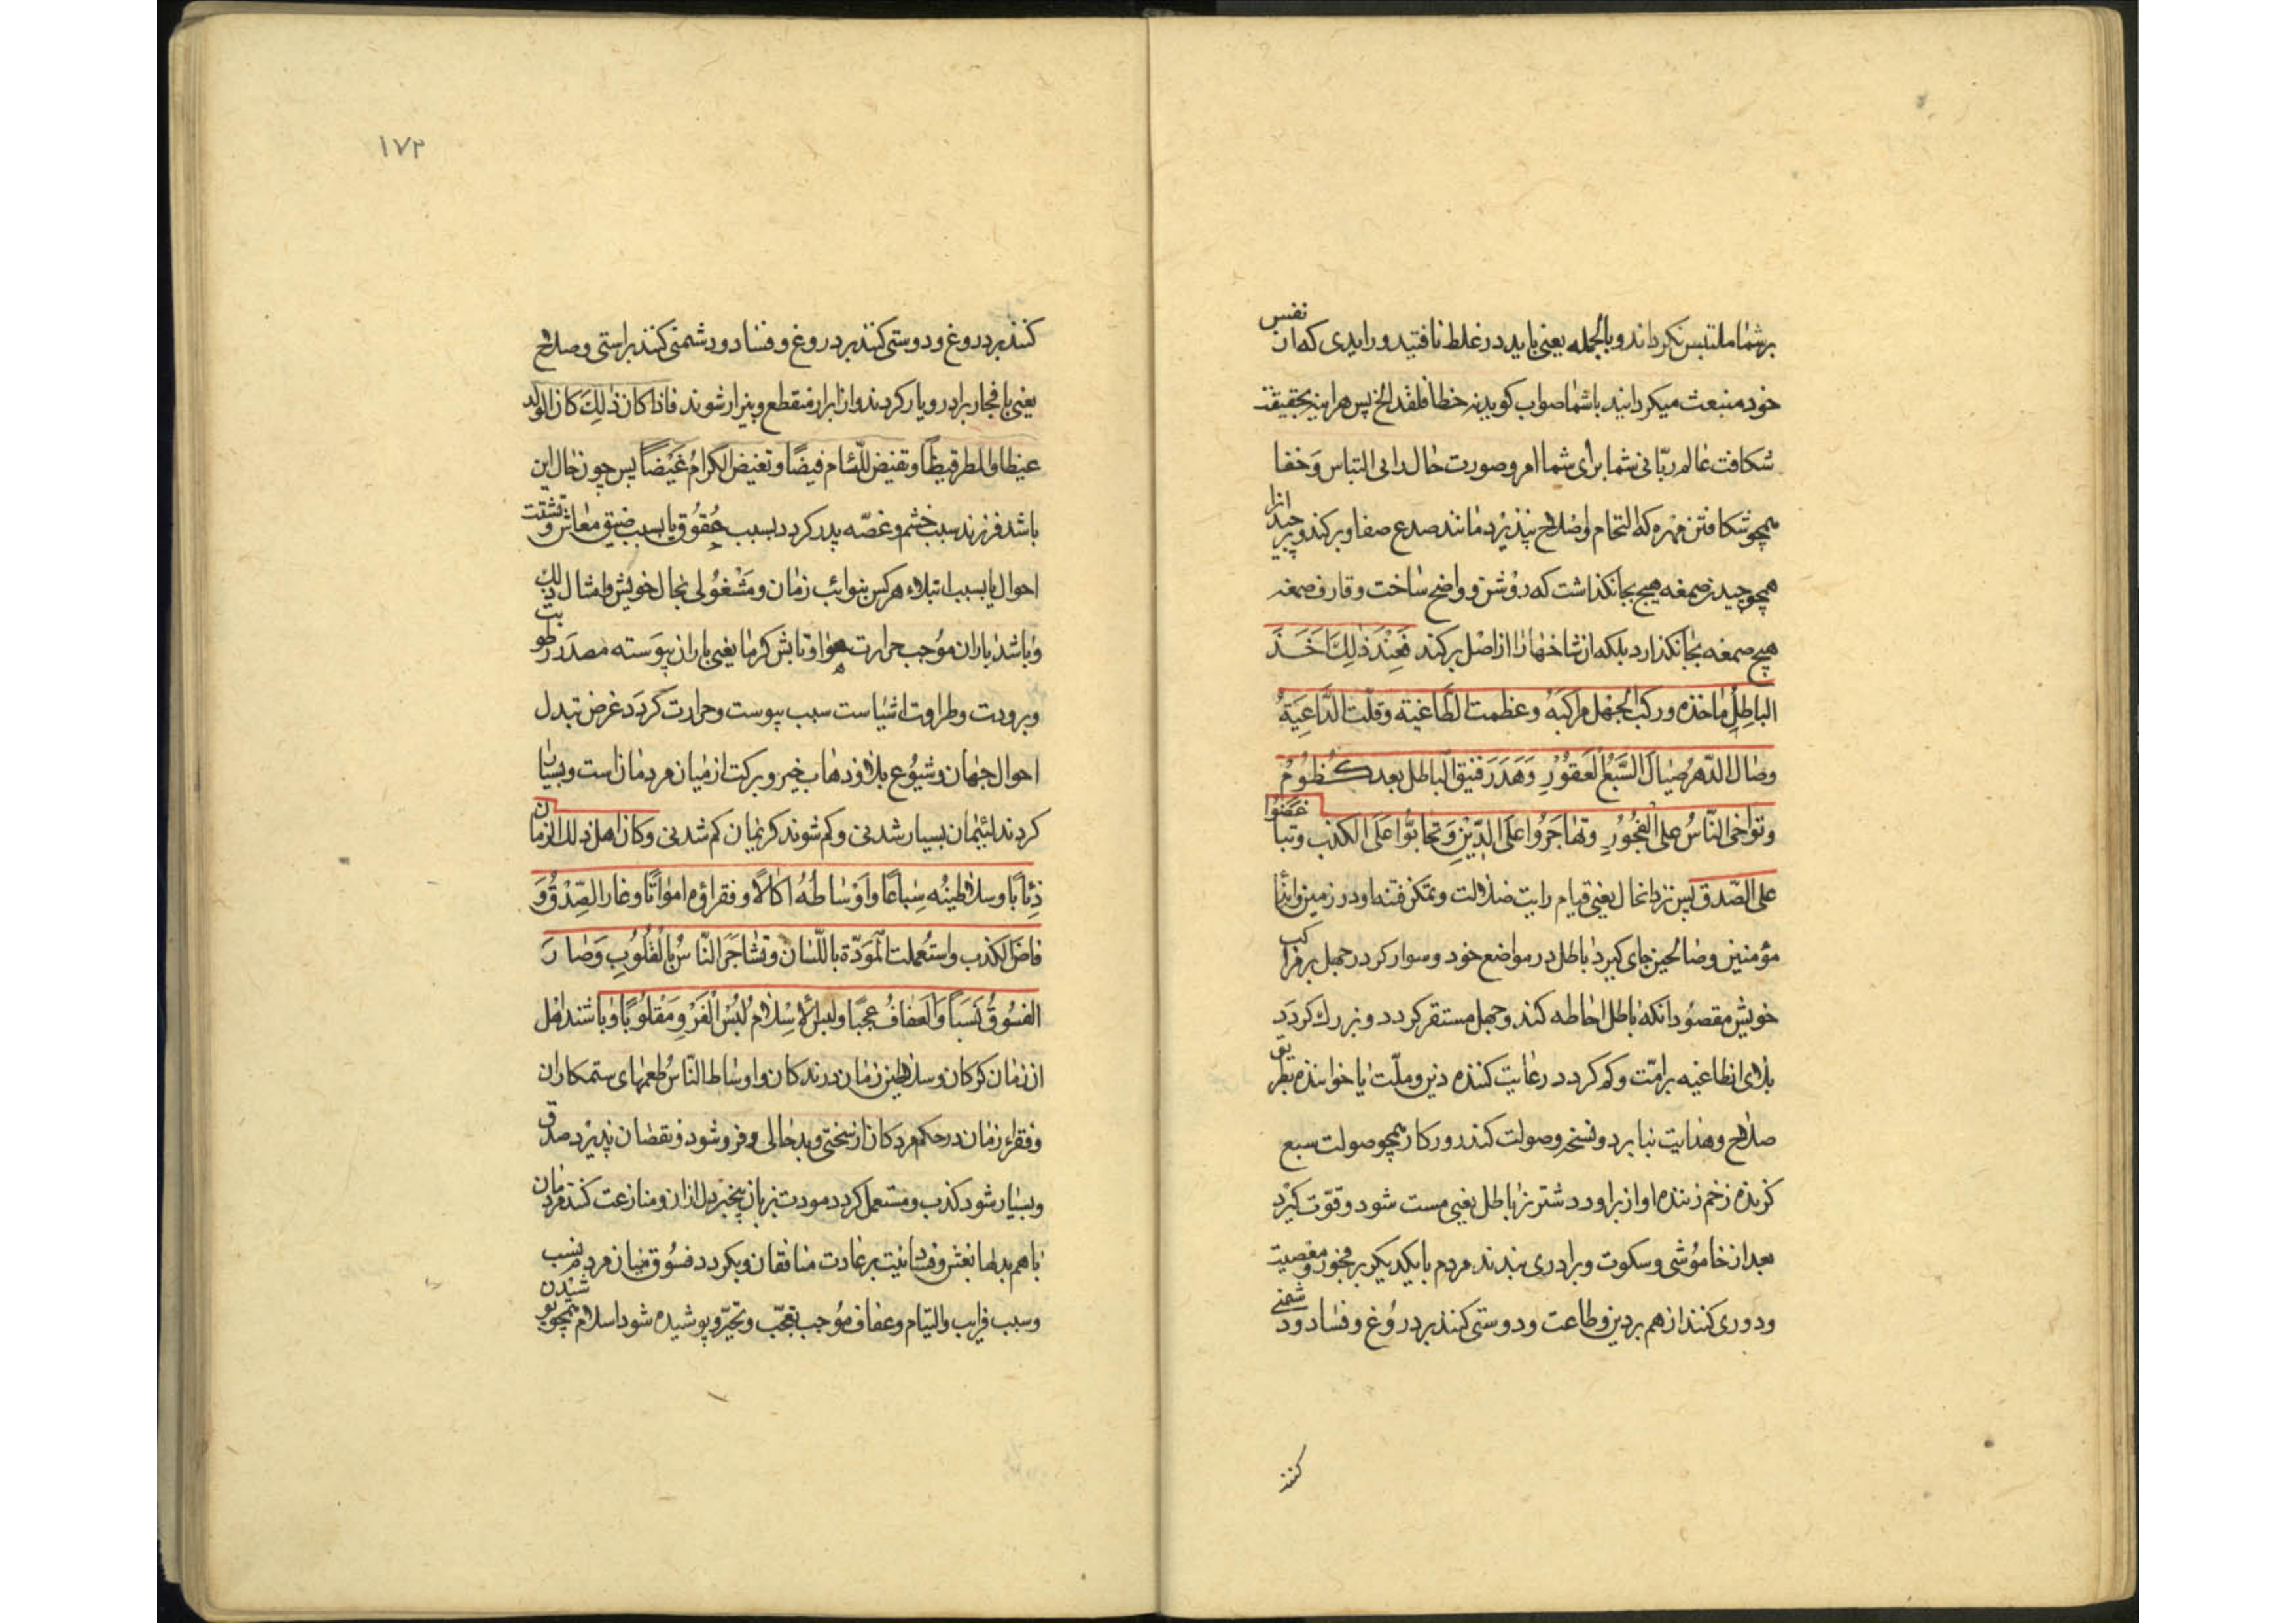 بر شما ملتبس نکرداند و بالجمله یعنی باید در غلط نافتید و رایدی که از نفس
خود منبعث میکردانید باشما صواب کوید نه خطا فلقد الخ پس هراینه بتحقیقت
شکافت عالم ربّانی شما برای شما امر و صورت حال را بی التباس و خفا
همچو شکافتن مهره که التحام و صلاح نپذیرد مانند صدع صفا و برکند و برچید انرا
همچو چیدن صمغه هیچ بجا نکذاشت که روشن و واضح ساخت و قارف صمغه
هیچ صمغه بجا نکذارد بلکه از شاخها را از اصل برکند فَعِنْدَ ذٰلِكَ اَخَذَ
الباطِلُ مٰاخذه و رکب الجَهْل مَراکِبَهُ و عظمت الطّاغیَه و قلّت الدّاعِیَةُ
وصٰال الدّهرُ صِیٰالَ السَّبُعُ الْعَقُوْرِ وَ هَدَرَ فَنیقُ الباطل بعد کُظُوْمُ
وتوٰاخی النّاسُ علی الْفجُوُرِ وتَهٰاجَرُوا عَلَی الدّیْنِ وَ تَحٰابّوُا عَلَی الکذب و تباغَضُوا
علی الصّدق پس نزد انحال یعنی قیام رایت ضلالت و تمکن فتنه او در زمین وایذا
مؤمنین وصالحین جای کیرد باطل در مواضع خود و سوار کردد جهل بر مراکب
خویش مقصُود انکه باطل احاطه کند و جهل مستقر کردد و بزرك کردَد
بلای انطاغیه بر امّت و کم کردد رعایت کننده دین و ملّت یا خواننده بطریق
صلاح و هدایت نیابرد و نسخر وصولت کند روزکار همچو صولت سبع
کزنده زخم زننده اواز براورد شتر نر باطل یعنی مست شود و قوّت کیرد
بعد از خاموُشی و سکوت و برادری بندند مردم با یکدیکر بر فجور و معصیت
و دوری کنند از هم بر دین و طاعت و دوستی کنند بر دروُغ و فساد و دشمنی
کنند
١٧٢
کنند بر دروغ و دوستی کنند بر دروغ و فساد و دشمنی کنند براستی وصلاح
یعنی با فجار برادر و یار کردند و از ابرار منقطع و بیزار شوند فاذا کان ذٰلِكَ کٰان الولد
غیظا والمطر قیظاً و تفیض اللّئام فیضًا و تغیض الکرامُ غَیْضاً پس چون حال این
باشد فرزند سبب خشم و غصّه پدر کردد بسبب عُقوُق یا بسبب ضیق معاش و تشتّت
احوال یا بسبب ابتلاء هر کس بنوائب زمان و مَشْغوُلی بحال خویش و امثال ذلك
و باشد باران موُجب حرارت هوا و تابش کرما یعنی باران پیَوسته مصدَر رطوبت
و برودت و طراوت اشیاست سبب یبوست و حرارت کردَد غرض تبدل
احوال جهان و شیوُع بلا و ذهاب خیر و برکت از میان مردمان است و بسیار
کردند لئیمان بسیار شدنی و کم شوند کریمان کم شدنی و کان اهل ذلك الزمان
ذِئاًبًا و سلاطینُه سِبٰاعًا و اَوْسٰاطُهُ اکٰالاً و فقراؤه امواتًا و غار الصِّدْقُ وَ
فاضَ الکذب و استُعملت الْمَوَدّة باللّسٰان و تشٰاجَرَ النّاسُ بالْقُلوُبِ وَصٰارَ
الفسُوُقُ نَسَباً وَالْعَفافُ عجَبًا و لبس الْإسْلٰامُ لُبْسَ الْفَرْوِ مَقْلوُبًا و باشند اهل
ان زمان کرکان و سلاطین زمان درندکان و اوساط النّاس طعمهای ستمکاران
و فقراء زمان در حکم مردکان از سختی و بدحالی و فرو شود و نقصان پذیرد صدق
و بسیار شود کذب و مستعمل کردد مودت بزبان بیخبر دل ازان و منازعت کنند مردمان
با هم بدلها بغش و خیانت بر عادت منافقان و بکردد فسُوُق میان مردم نسب
و سبب قرابت والتیام و عفاف موُجب تعجّب و تحیّر و پوشیده شود اسلام همچو پوشیدن